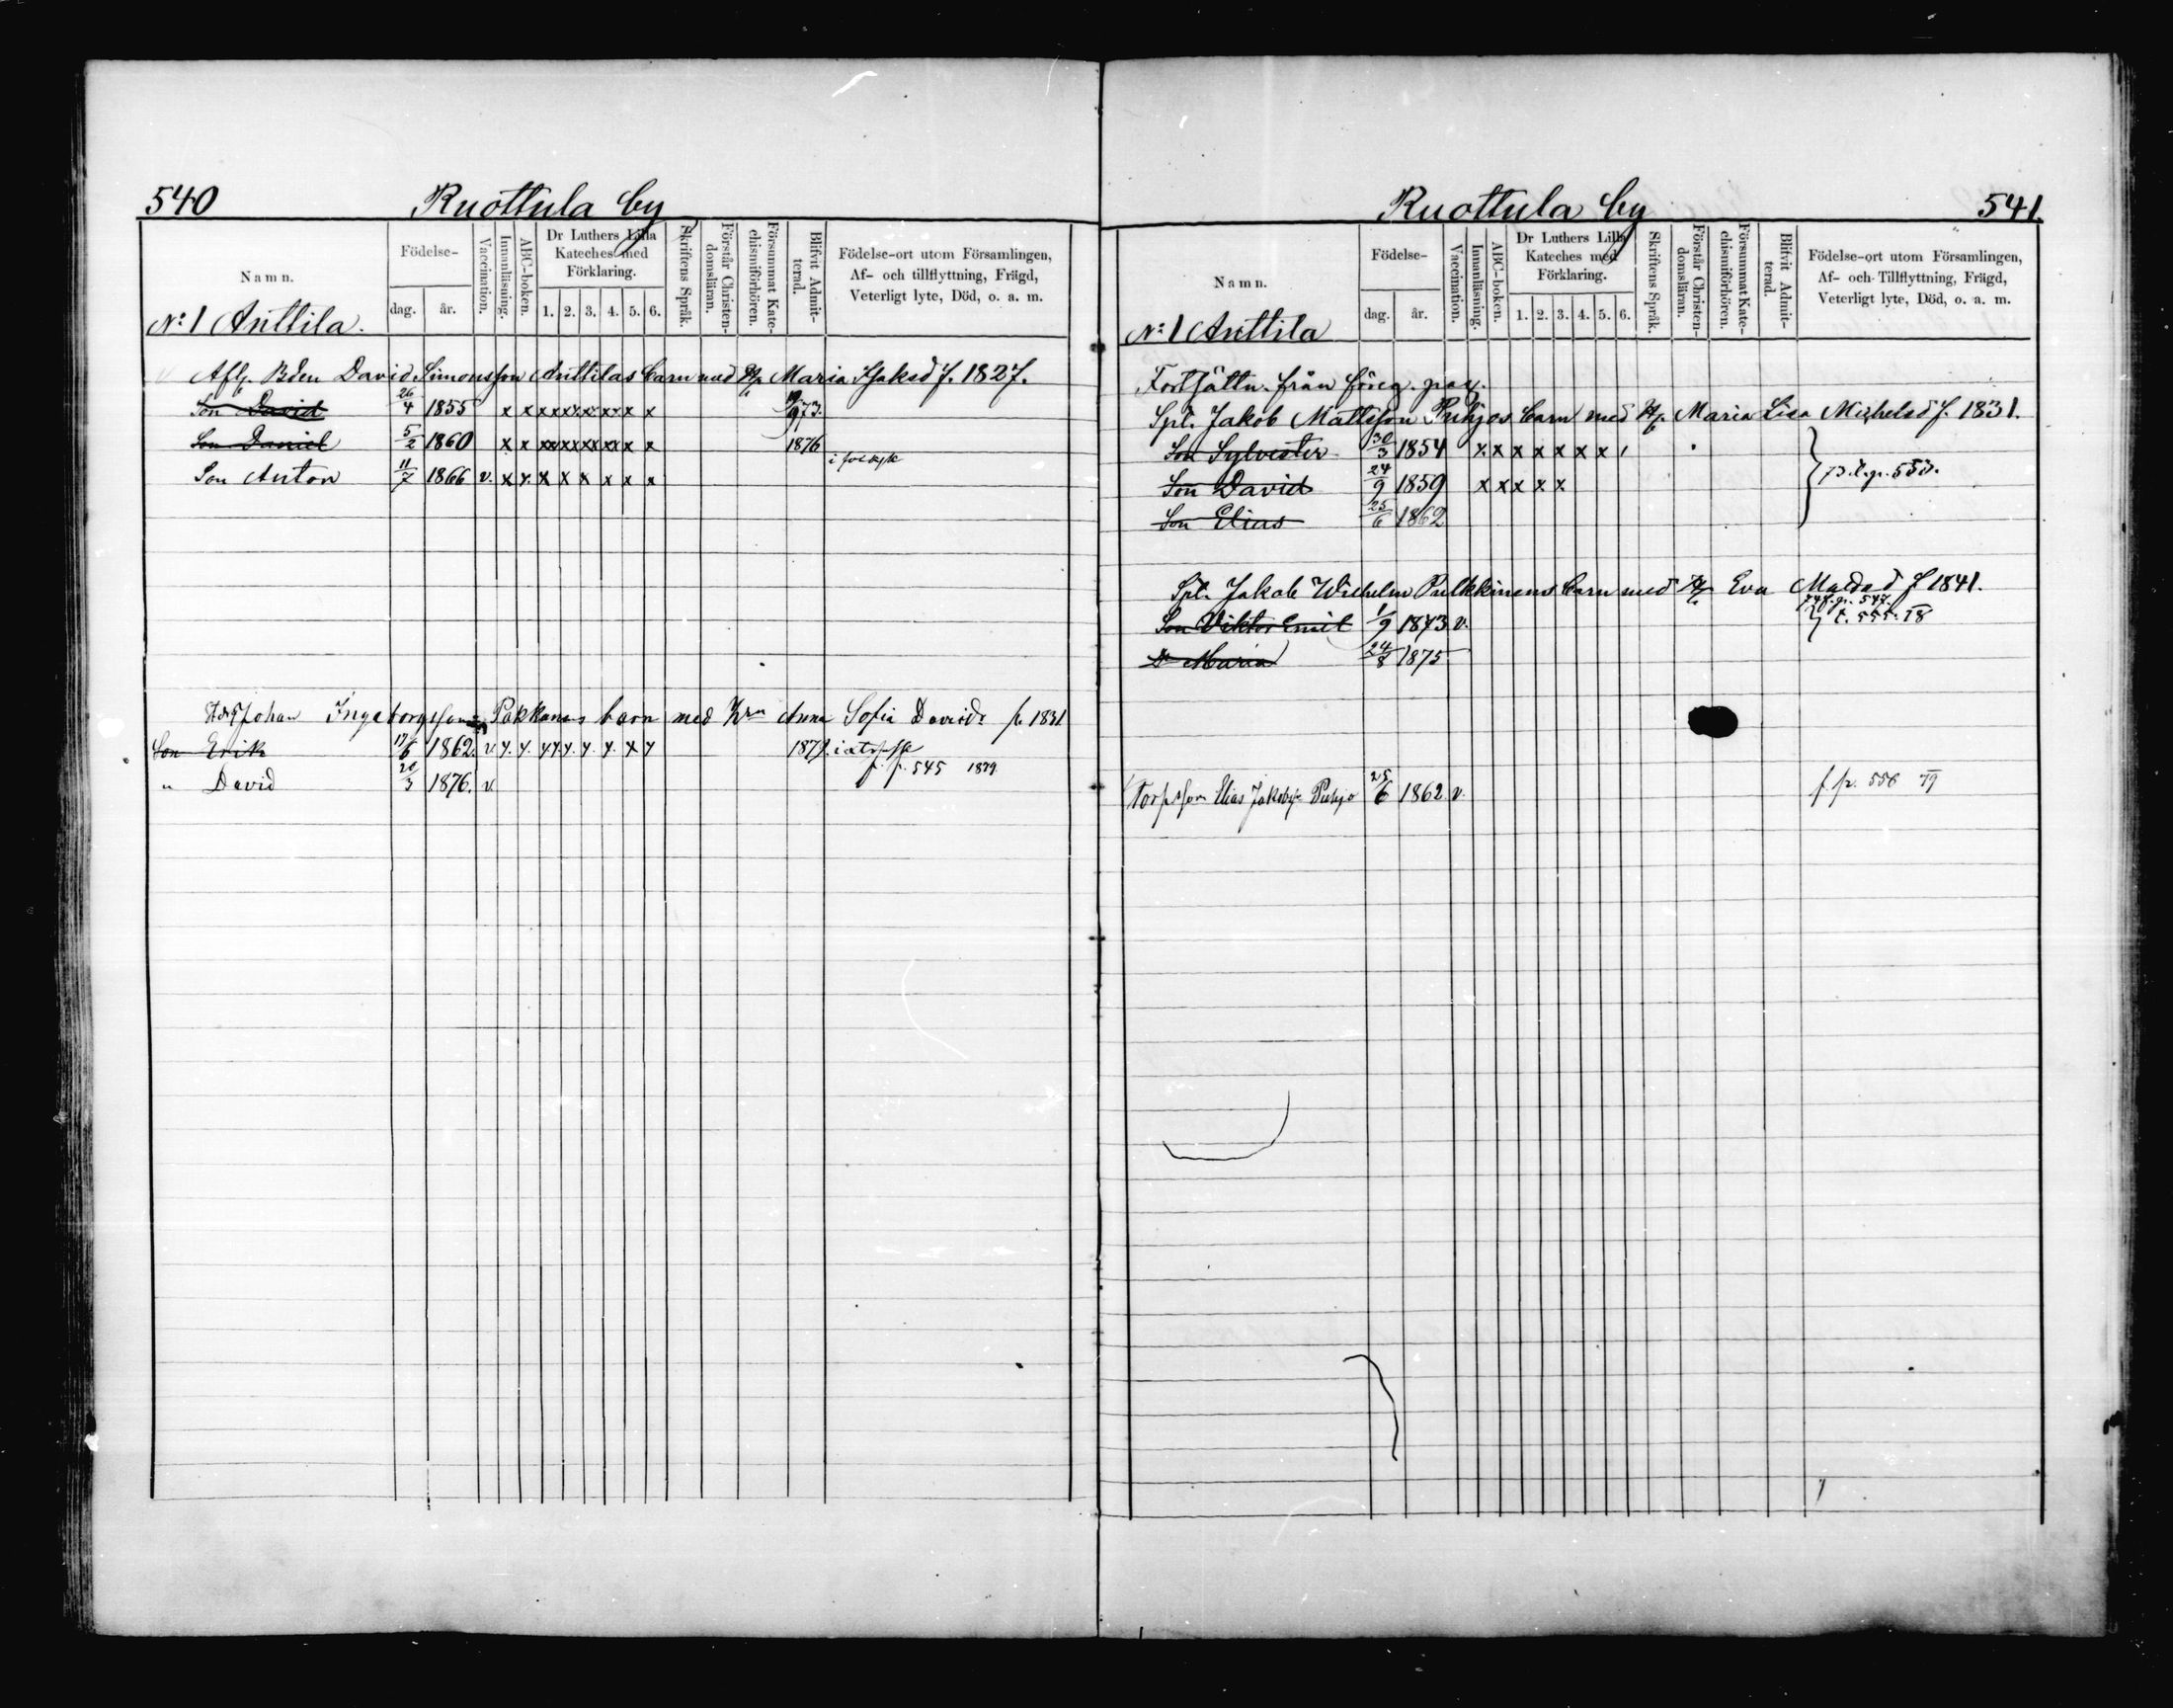 540 Ruottula by
Namn. Födelse- dag. år. Vaccination. Innanläsning. ABC-boken. Dr Luthers Lilla Kateches med Förklaring. 1. 2. 3. 4. 5. 6. Skriftens Språk. Förstår Christendomsläran. Försummat Katechismiförhören. Blifvit Admitterad. Födelse-ort utom Församlingen, Af- och tillflyttning, Frägd, Veterligt lyte, Död, o. a. m.
No 1 Anttila.
Afl. Bden David Simonsson Anttilas barn med Hu Maria f. 1827.
Son David 26/4 1855 x x x x x x x x x 73.
Son Daniel 5/2 1860 x x xx xx xx xx x x 1876
Son Anton 11/7 1866 v. x x x x x x x x
Johan Ingeborgsson Pakkanens barn med Hrn Anna Sofia Davidr f. 1831
Son Erik 17/6 1862. v. 1879.
f. p. 545 1879
" David 20/3 1876. v.
Ruottula by 541.
Namn. Födelse- dag. år. Vaccination. Innanläsning. ABC-boken. Dr Luthers Lilla Kateches med Förklaring. 1. 2. 3. 4. 5. 6. Skriftens Språk. Förstår Christendomsläran. Försummat Katechismiförhören. Blifvit Admitterad. Födelse-ort utom Församlingen, Af- och Tillflyttning, Frägd, Veterligt lyte, Död, o. a. m.
No 1 Anttila
Fortsättn. från föreg. pag.
Spl. Jakob Mattsson Puhjos barn med Hu Maria Lisa Michelsd f. 1831.
Son Sylvester 30/3 1854 x x x x x x x
Son David 24/9 1859 x x x x x
Son Elias 25/6 1862
Spl. Jakob Wilhelm Pulkkinens barn med Hu Eva f 1841.
Son Viktor Emil 1/9 1873 v. t. 555. 78
Dr Maria 24/8 1875
Torpsson Elias Jakobsson Puhjo 25/6 1862. v. f. p. 556 79